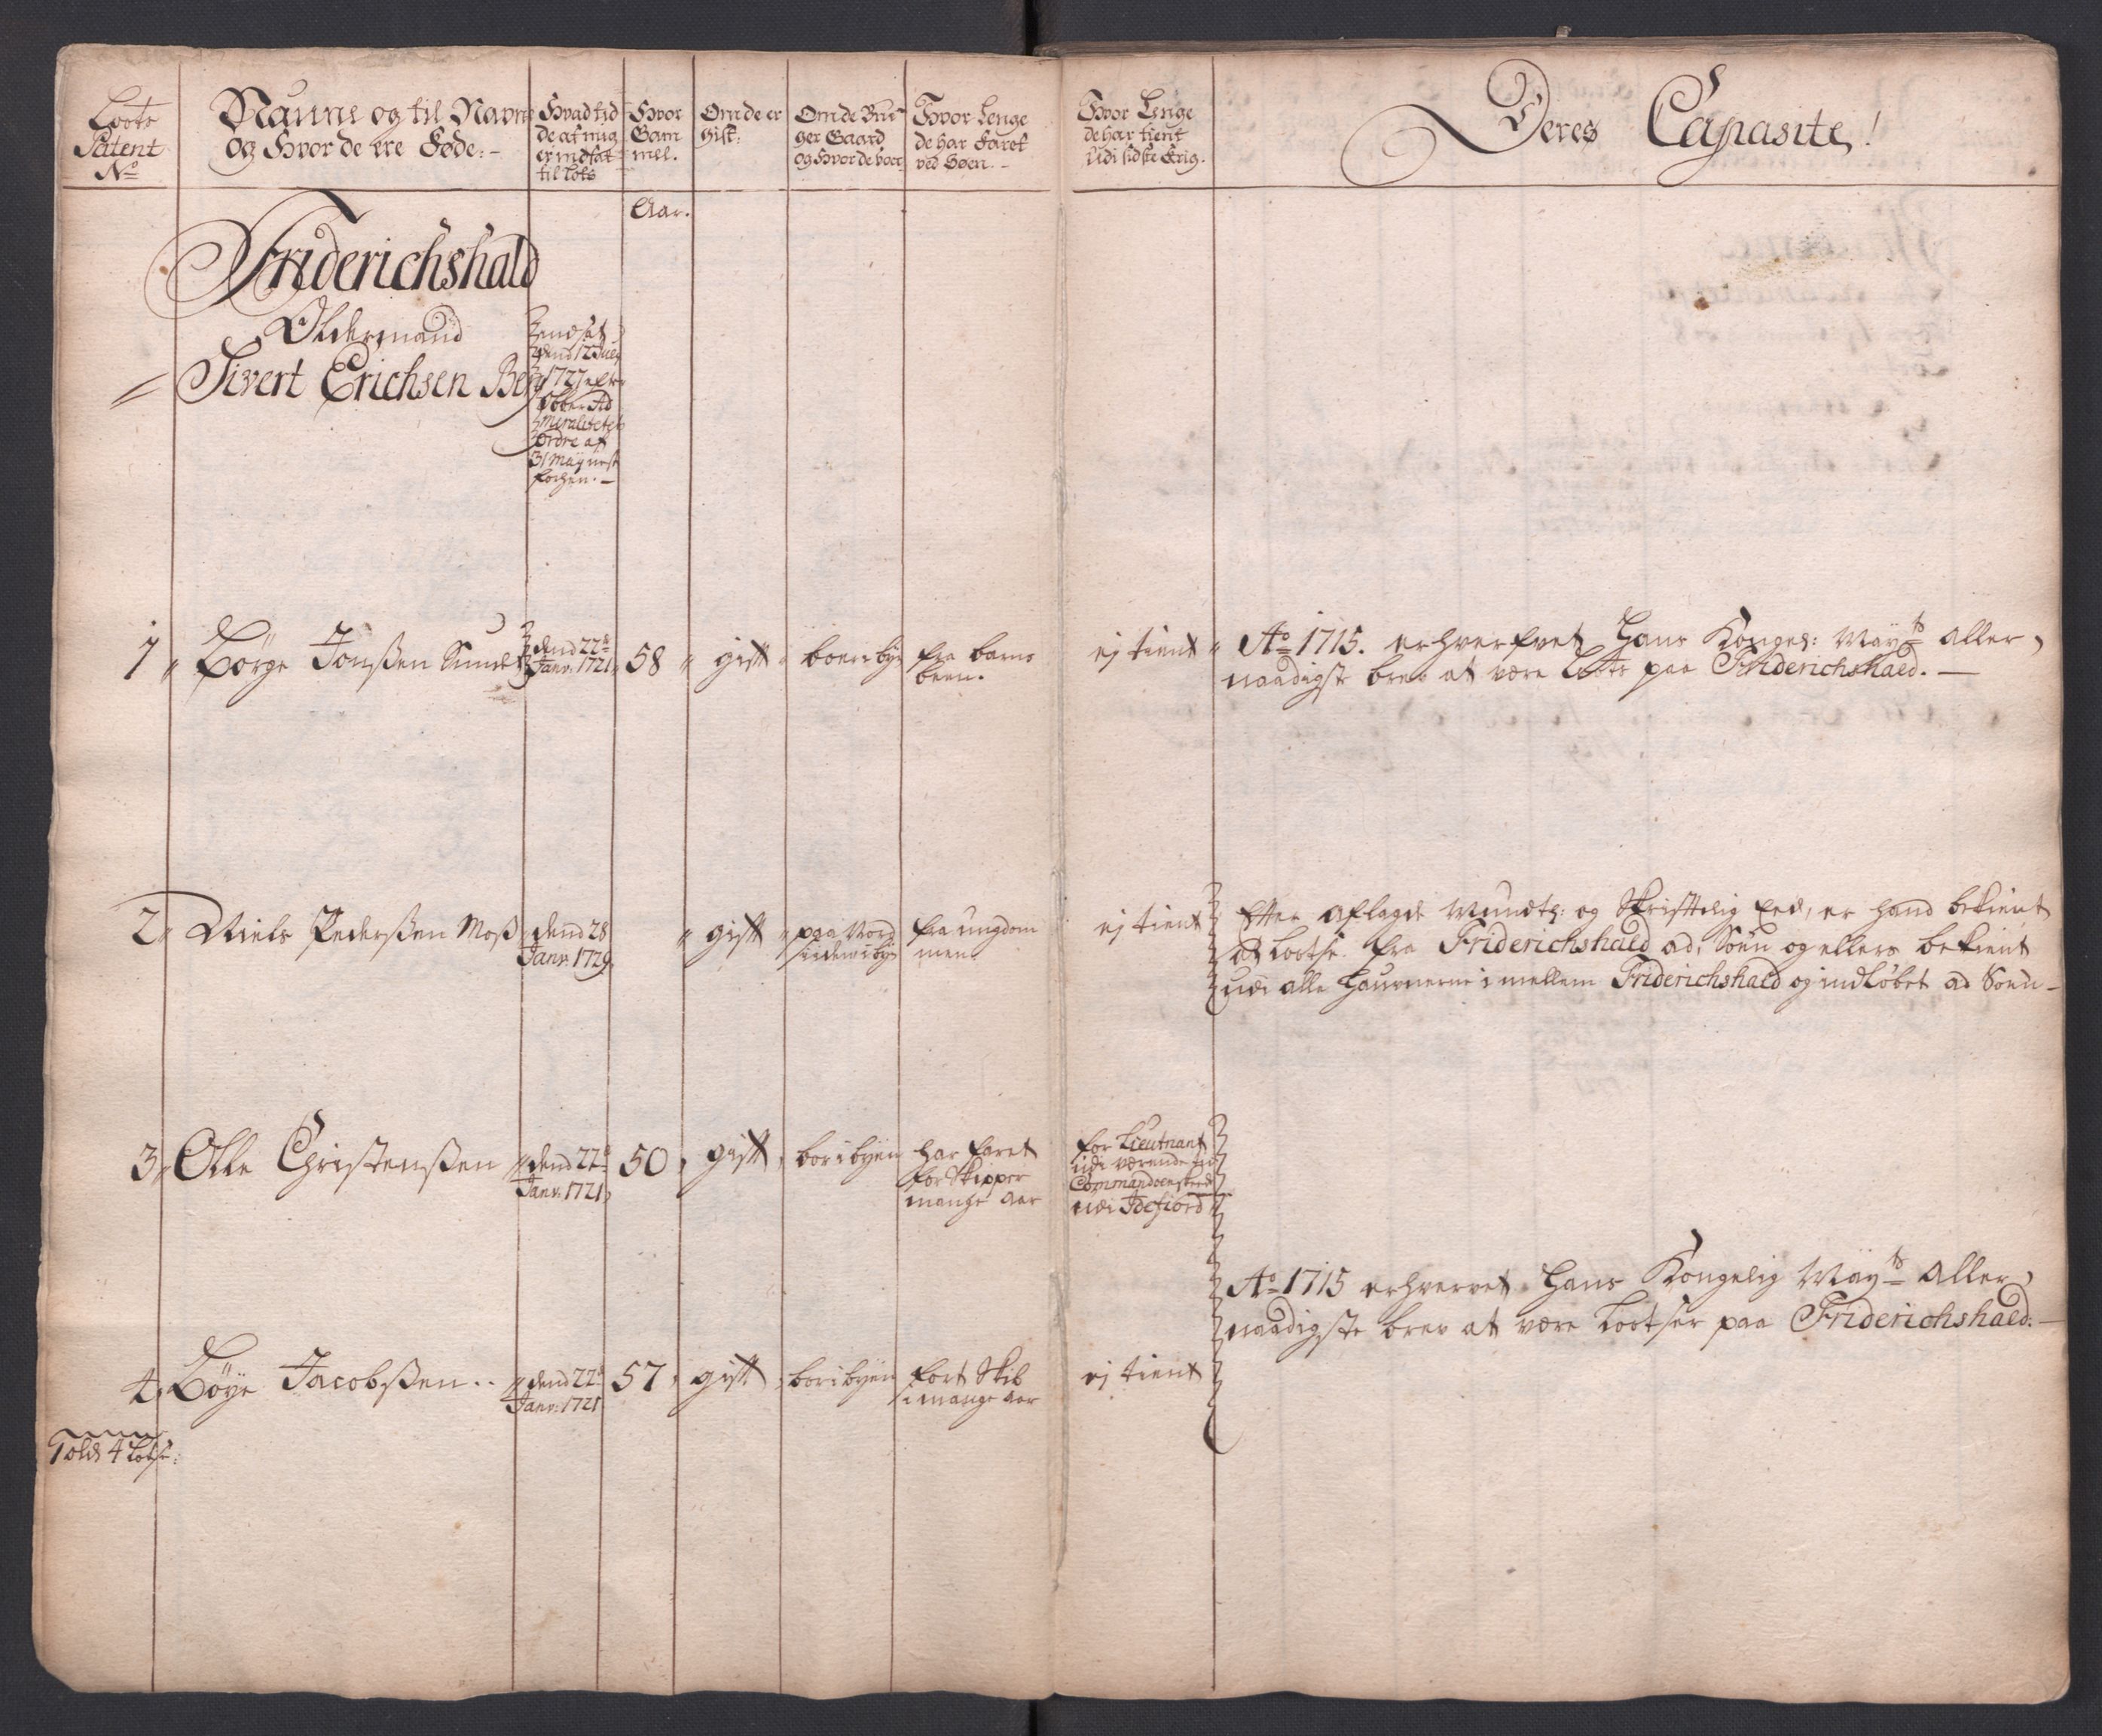 Loots
Patent
No
Naune og til Navn
og Hvor de ere Føde:-
Hvad tid
de af mig
er indsat
til Lots
Hvor
Gam
mel.
Om de er
Gift:
Om de Bru-
ger Gaard
og Hvor de boer
Hvor Lenge
de har Faret
ved Søen.-
Hvor Lenge
de har tient
Udi sidste Krig.
Deres Capasite!
Aar.
Friderichshald
Oldermand
Sivert Erichsen Berg
indsat
dend 12 July
1727 efter
Ober Ad
miralitetets
ordre af
31 May nest
forhen.-
1
Børge Jonßen Sundt
dend 22de
Janv: 1721
58
gift
boer i bÿn
fra barns
been.
ej tient
Ao 1715. erhverfvet Hans Kongel: Maÿts aller,
naadigste brev at være Loots paa Friderichshald.-
2
Niels Pederßen Moß
dend 28
Janv: 1729
gift
paa Nord
siiden i bÿn
fra ungdom
men.
ej tient
Efter aflagde Mundtl: og Skrifttlig Eed, er hand bekient
at Lootse fra Friderichshald ad Soen og ellers bekient
udi alle Haunerne i mellem Friderichshald og indløbet ad Soen-
3
Olle Christenßen
dend 22de
Janv: 1721
50
gift
bor i bÿen
har faret
for Skipper
mange aar
for Lieutnant
udi værende
Commandoenskab
udi Idefiord
Ao 1715 erhvervet Hans Kongelig Maÿts aller,
naadigste brev at være Lootser paa Friderichshald.-
4
Böÿe Jacobßen..
dend 22de
Janv: 1721
57
gift
bor i bÿen
fort Skib
i mange aar
ej tient
Tolds 4 Lotse: